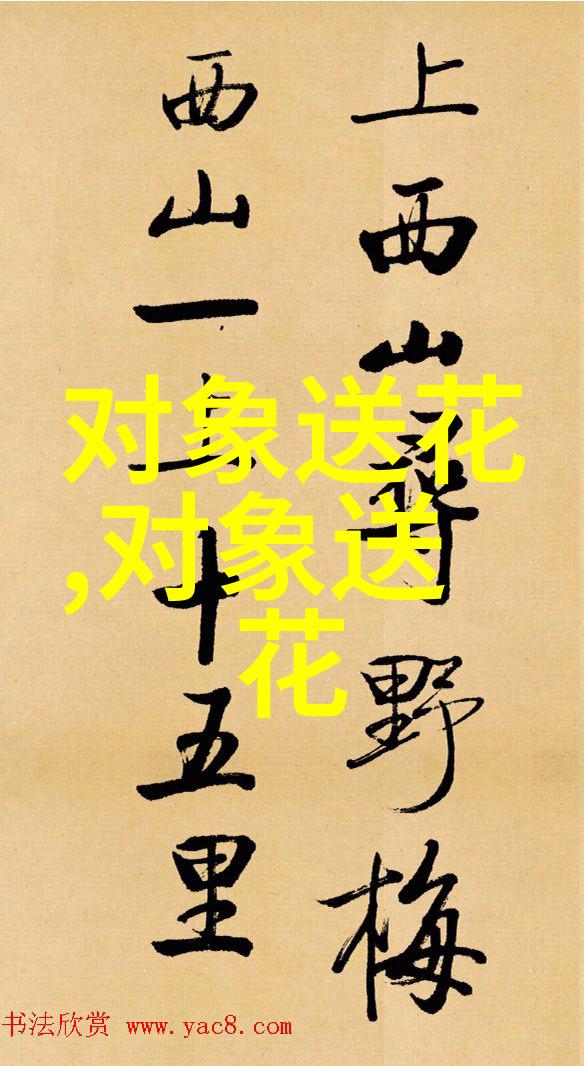 上西山尋野梅
西山一上十五里
对象送花
,对象送
花
书法欣赏 www.yac8.com